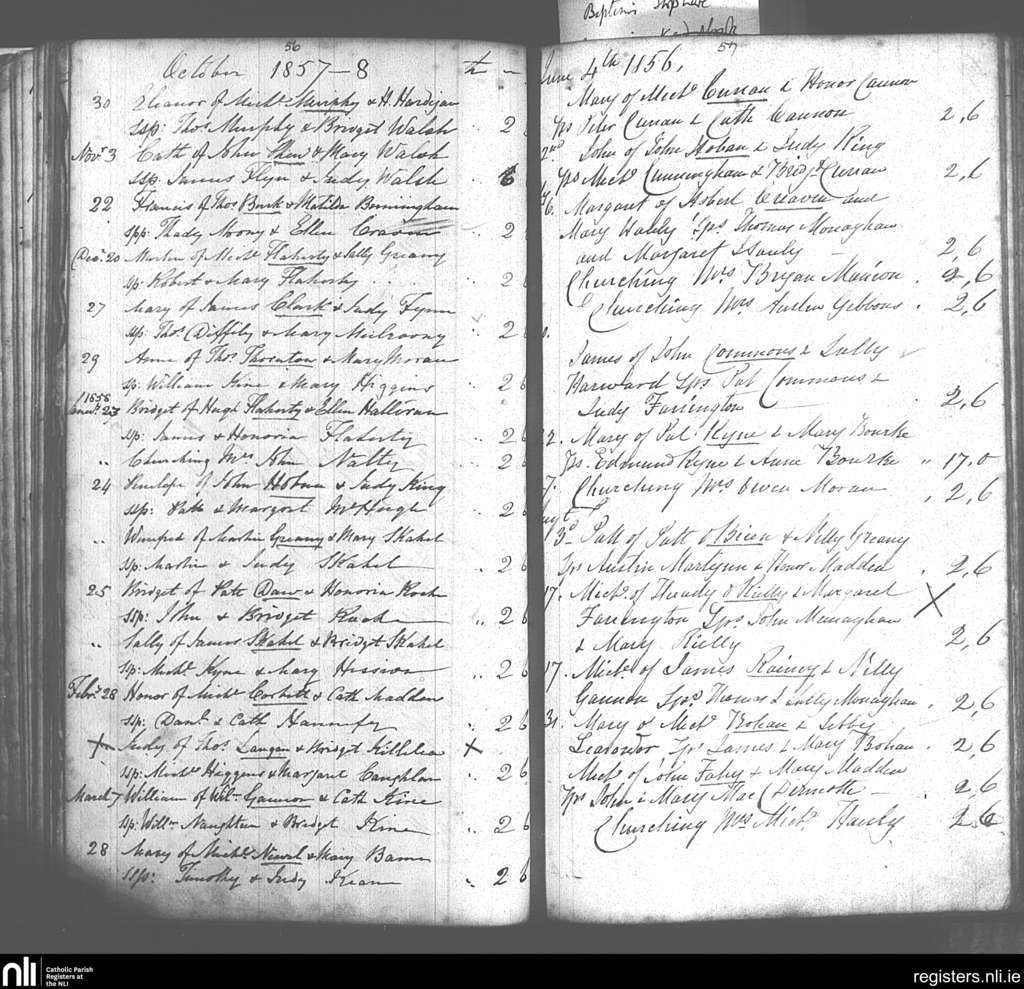 Baptisms
56
October 1857-8
30 Eleanor of Michl Murphy & H. Hardijan
ssp: Thos Murphy & Bridget Walsh .. 2 6
Novr 3 Cath of John Shew & Mary Walsh
ssp. James Flyn & Judy Walsh .. 6
22 Francis of Thos Burk & Matilda Bermingham
ssp: Thady Noony & Ellen Craven 2
Decr. 20 Martin of Michl Flaherty & Sally Greany
sp. Robert & Mary Flaherty .. 2 6
27 Mary of James Clark & Judy Fynn
sp. Thos Diffily & Mary Mulroony .. 2 6
29 Anne of Thos Thornton & Mary Moran
sp. William Kine & Mary Higgins .. 2 6
1858
Januy. 23 Bridget of Hugh Flaherty & Ellen Halliran
sp: James & Honoria Flaherty .. 2 6
" Churching Mrs John Natty .. 2 6
24 Penelope of John Hoban & Judy King
ssp: Patt & Margart McHugh .. 2 6
" Winifred of Martin Greany & Mary Skahel
sp. Martin & Judy Skahel .. 2 6
25 Bridget of Patt Daw & Honoria Rock
ssp: John & Bridget Roche .. 2 6
" Sally of James Skahel & Bridget Skahel
sp: Michl Kyne & Mary Hession .. 2 6
Febr. 28 Honor of Michl Corbett & Cath Madden
ssp: Danl. & Cath Hannify .. 2 6
X Judy of Thos. Langan & Bridget Killilea X
sp. Michl Higgins & Margaret Coughlan 2 6
March 7 William of Wilm Gannon & Cath Kine
sp: Willm Naughten & Bridget Kine .. 2 6
28 Mary of Michl. Newel & Mary Bann
ssp: Timothy & Judy Kean .. 2 6
57
June 4th 1856.
Mary of Michl Curran & Honor Cannon
sps Peter Curran & Cath Cannon 2,6
2nd John of John Hoban & Judy King
sps Michl Cunningham & Bridgt Curran 2,6
Margaret of Robert Creaven and
Mary Haley sps Thomas Monaghan
and Margaret Hauly - 2,6
Churching Mrs Bryan Manion . 2,6
Churching Mrs Austin Gibbons . 2,6
James of John Commons & Sally
Harward sps Pat Commons &
Judy Farrington 2,6
Mary of Pat. Kyne & Mary Bourke
sps. Edmund Kyne & Anne Bourke " 17.0
7. Churching Mrs Owen Moran . 2,6
3d Patt of Patt O Brien & Nelly Greany
sps Austin Martynn & Honor Madden . 2,6
17. Michl. of Thady O Reilly & Margaret X
Farrington sps. John Monaghan
& Mary Reilly 2,6
17. Michl. of James Rainey & Nelly
Gannon sps. Thomas & Sally Monaghan . 2,6
31. Mary of Michl Bohan & Sibby
Leadouor sps James & Mary Bohan . 2,6
Michl of John Fahy & Mary Madden
sps John & Mary Mac Dermott - . 2,6
Churching Mrs Michl. Hauly 2,6
nli
Catholic Parish
Registers at
the NLI
registers.nli.ie